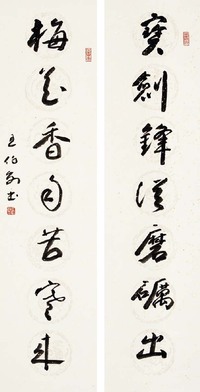 寶劍鋒從磨礪出
梅花香自苦寒來
王伯敏書